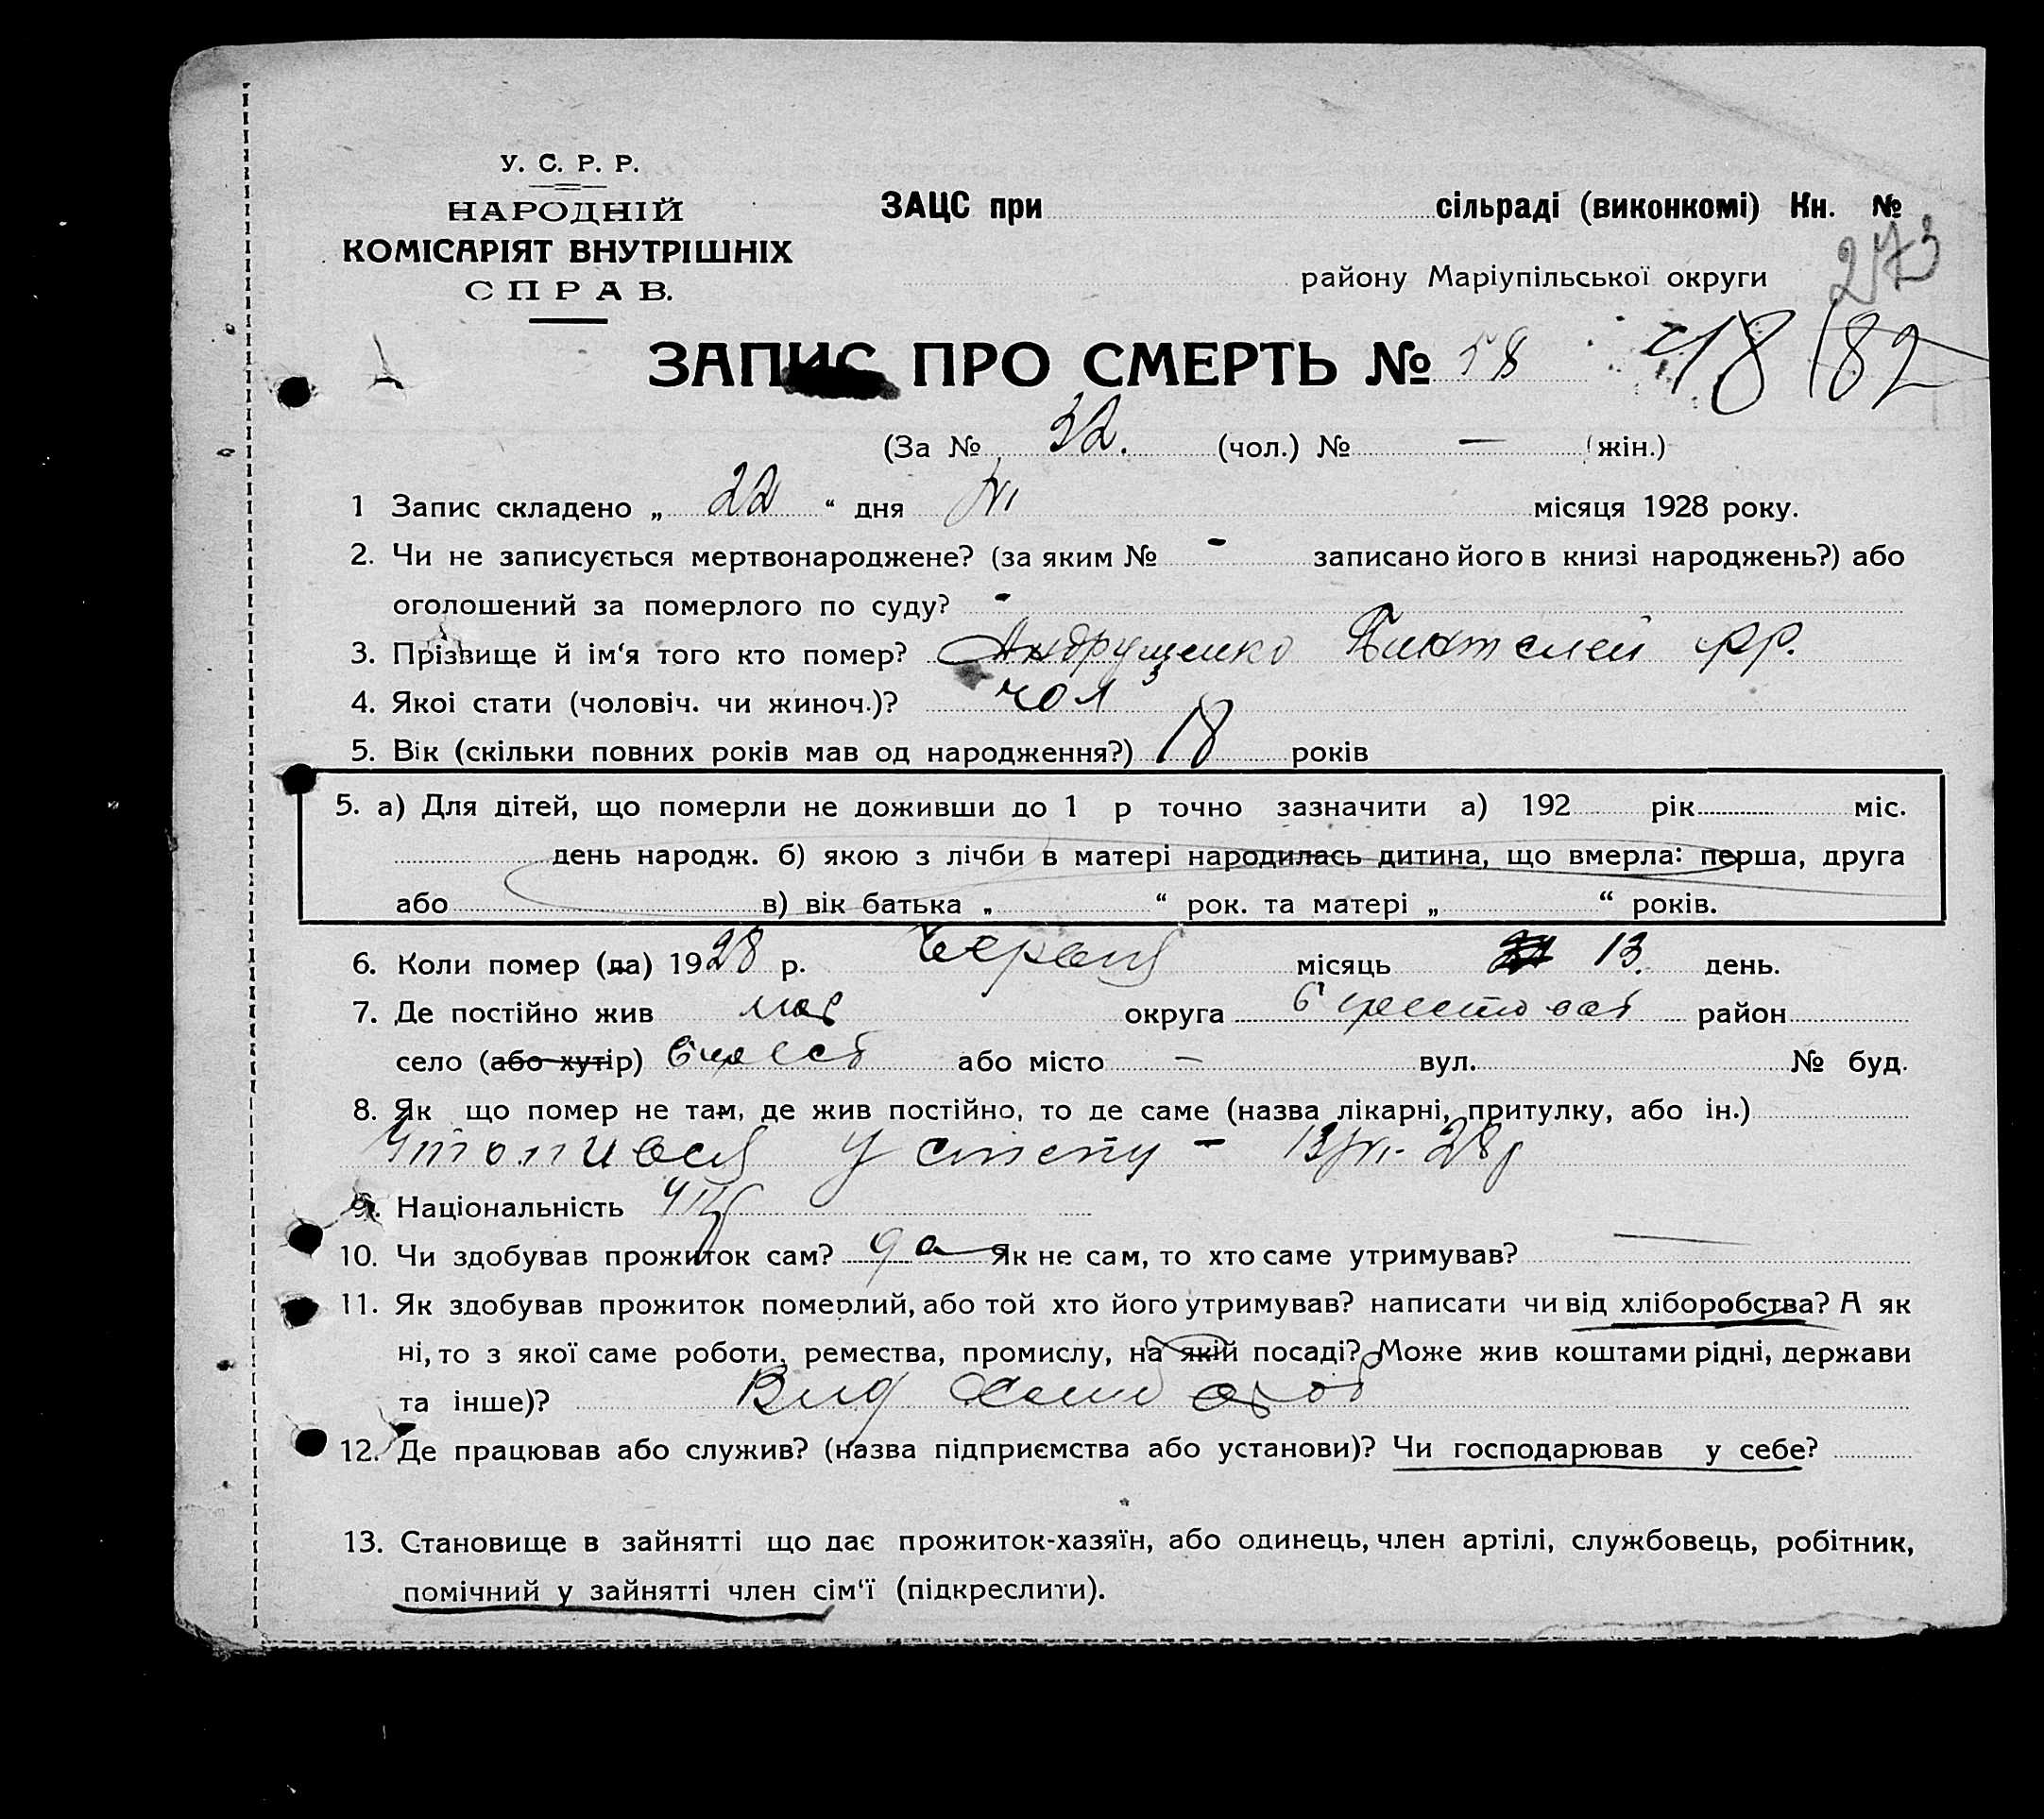 У. С. Р. Р.
НАРОДНІЙ
КОМІСАРІЯТ ВНУТРІШНІХ
СПРАВ.
ЗАЦС при сільраді (виконкомі) Кн. №
273
району Маріупільської округи
ЗАПИС ПРО СМЕРТЬ № 58 48 182
(За № 32. (чол.) № — (жін.)
1 Запис складено „ 22 “ дня VI місяця 1928 року.
2. Чи не записується мертвонароджене? (за яким № - записано його в книзі народжень?) або
оголошений за померлого по суду? -
3. Прізвище й ім‘я того кто помер? Андрущенко Пантелей
4. Якоі стати (чоловіч. чи жиноч.)? чол
5. Вік (скільки повних років мав од народження?) 18 років
5. а) Для дітей, що померли не доживши до 1 р точно зазначити а) 192 рік міс.
день народж. б) якою з лічби в матері народилась дитина, що вмерла: перша, друга
або в) вік батька „ “ рок. та матері „ “ років.
6. Коли помер (ла) 1928 р. Червня місяць 13. день.
7. Де постійно жив мар округа район
село (або хутір) або місто — вул. № буд.
8. Як що помер не там, де жив постійно, то де саме (назва лікарні, притулку, або ін.)
Утопивсь у степу - 13/VI- 28р
9. Національність укр
10. Чи здобував прожиток сам? да Як не сам, то хто саме утримував?
11. Як здобував прожиток померлий, або той хто його утримував? написати чи від хліборобства? А як
ні, то з якої саме роботи, ремества, промислу, на якій посаді? Може жив коштами рідні, держави
та інше)? Вид
12. Де працював або служив? (назва підприємства або установи)? Чи господарював у себе?
13. Становище в зайнятті що дає прожиток-хазяїн, або одинець, член артілі, службовець, робітник,
помічний у зайнятті член сім‘ї (підкреслити).